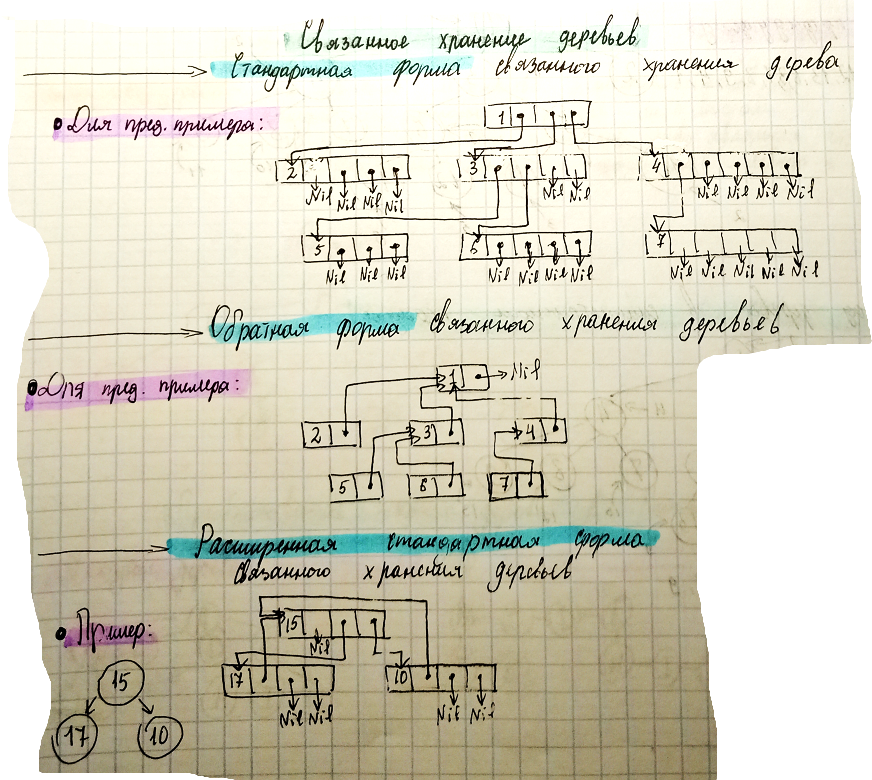 Связанное хранение деревьев
Стандартная форма связанного хранения дерева
• Для пред. примера:
1
2 3 4
Nil Nil Nil Nil Nil Nil Nil Nil Nil Nil
5 6 7
Nil Nil Nil Nil Nil Nil Nil Nil Nil Nil Nil Nil
Обратная форма связанного хранения деревьев
• Для пред. примера:
1 Nil
2 3 4
5 6 7
Расширенная стандартная форма
связанного хранения деревьев
• Пример:
15
Nil
17 10
Nil Nil Nil Nil
15
17 10